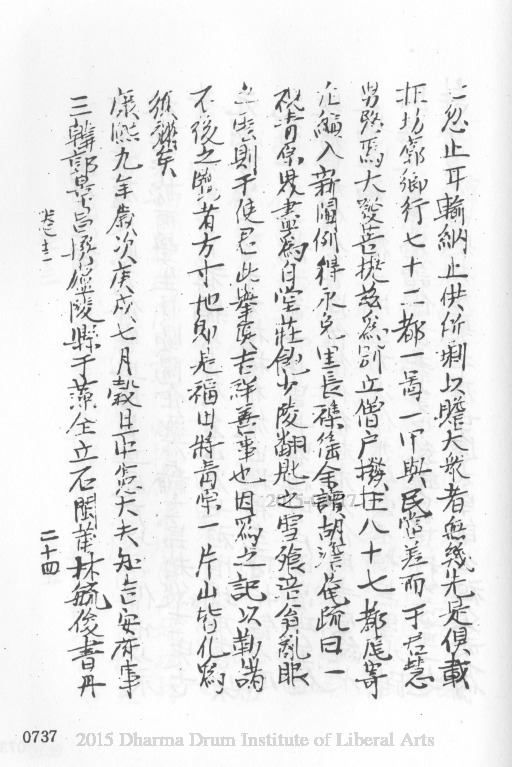 止忽止耳輸納止供所剩以贍大衆者無幾先是俱載
坊廓鄉行七十二都一啚一甲與民當差而于君慧
男路焉大發菩提茲為别立僧户撥庄八十七都尾寄
入新圖例得永免里長襍徭余讀胡澹菴疏曰一
硯青原煑畫為白堂莊飽少陵翻匙之雪飡涪翁亂眼
之雲則于使君此舉真吉祥善事也因為之記以勒滿
不後之覽者方寸地即是福田將青原一片山皆化為
須彌矣
康熙九年歲次庚戌七月穀旦中憲大夫知吉安府事
三韓郭景昌撰廬陵縣于藻仝立石閩莆林毓俊書丹
卷十二
二十四
0737
2015 Dharma Drum Institute of Liberal Arts